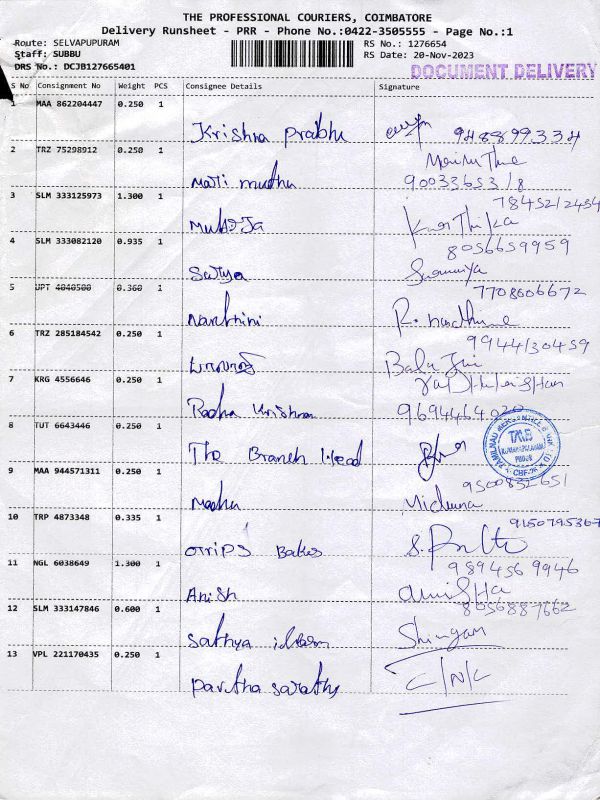 THE PROFESSIONAL COURIERS, COIMBATORE
Delivery Runsheet - PRR - Phone No.:0422-3505555 - Page No.:1
Route: SELVAPUPURAM RS No.: 1276654
Staff: SUBBU RS Date: 20-Nov-2023
DRS No.: DCJB127665401 DOCUMENT DELIVERY
S No Consignment No Weight PCS Consignee Details Signature
1 MAA 862204447 0.250 1
Krishna Prabhu
2 TRZ 75298912 0.250 1
Mari muthu
3 SLM 333125973 1.300 1
7845212454
4 SLM 333082120 0.935 1
8056659959
Satya
5 UPT 4040500 0.360 1
7708606672
Nanthini
6 TRZ 285184542 0.250 1
9944130459
Balaji
7 KRG 4556646 0.250 1
Radha Krishna 9694464020
8 TUT 6643446 0.250 1
The Branch Head
TMB
9 MAA 944571311 0.250 1
9500832651
Madhu
10 TRP 4873348 0.335 1
9150795367
11 NGL 6038649 1.300 1
9894569946
Anish
12 SLM 333147846 0.600 1
8056887662
13 VPL 221170435 0.250 1
Partha sarathy C/N/C